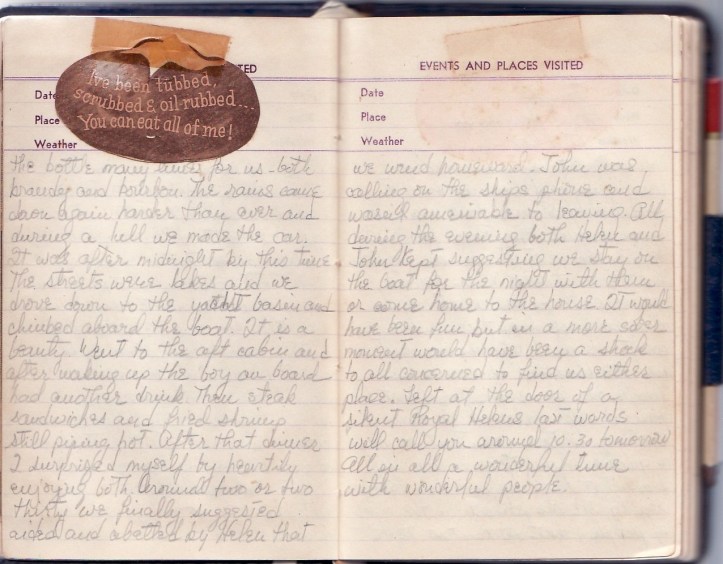 TED
I've been tubbed,
scrubbed & oil-rubbed...
You can eat all of me!
Date
Place
Weather
the bottle many times for us - both
brandy and bourbon. The rains came
down again harder than ever and
during a lull we made the car.
It was after midnight by this time
The streets were lakes and we
drove down to the yacht basin and
climbed aboard the boat. It is a
beauty. Went to the aft cabin and
after waking up the boy on board
had another drink then steak
sandwiches and fried shrimp
still piping hot. After that dinner
I surprised myself by heartily
enjoying both. Around two or two
thirty we finally suggested
aided and abetted by Helen that
EVENTS AND PLACES VISITED
Date
Place
Weather
we wend homeward. John was
calling on the ships phone and
wasn't amenable to leaving. All
during the evening both Helen and
John kept suggesting we stay on
the boat for the night with them
or come home to the house. It would
have been fun but in a more sober
moment would have been a shock
to all concerned to find us either
place. Left at the door of a
silent Royal Helens last words
will call you around 10.30 tomorrow
All in all a wonderful time
with wonderful people.